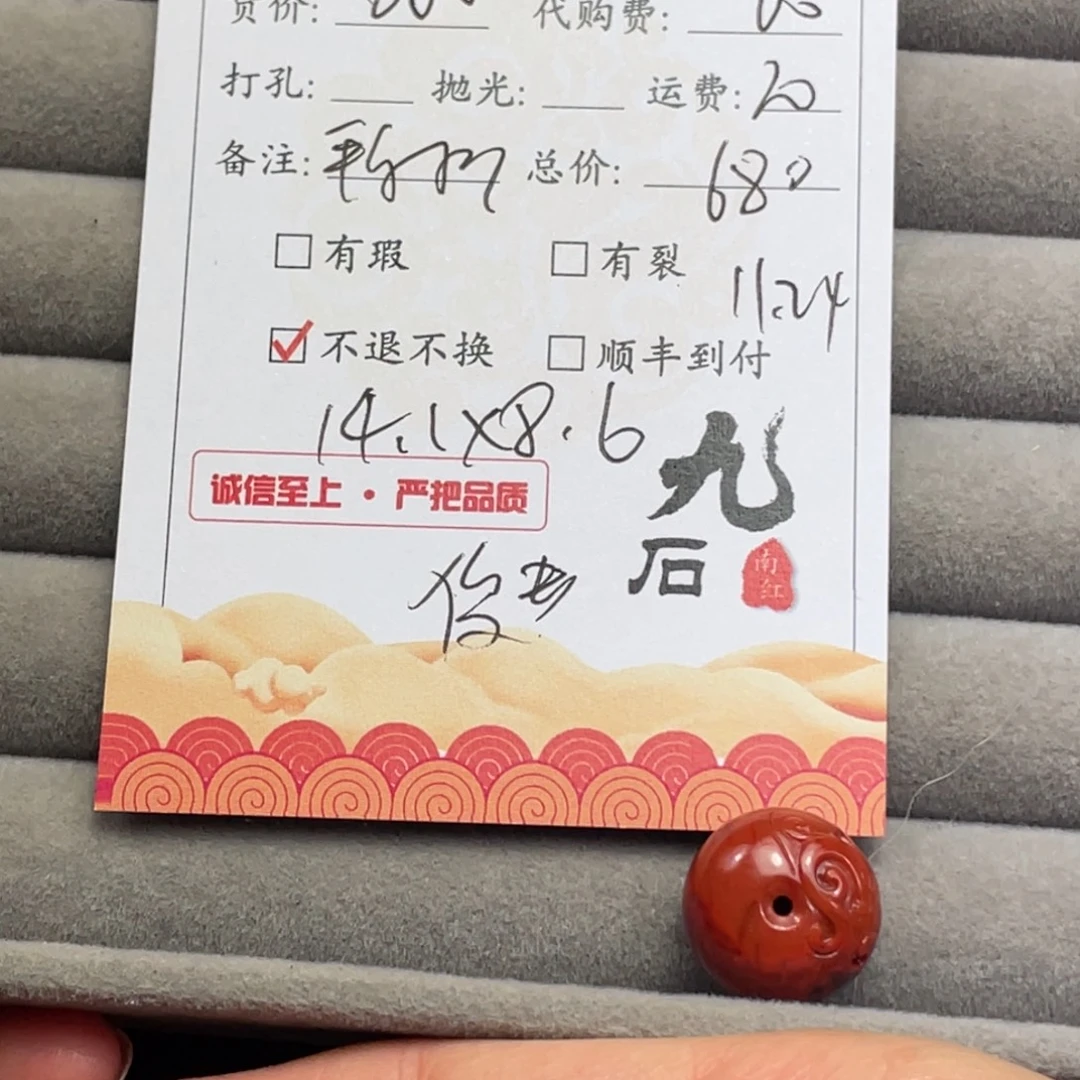 货价: 代购费:
打孔: 抛光: 运费: 20
备注: 总价: 680
有瑕 有裂
11.24
不退不换 顺丰到付
14.1x8.6
诚信至上·严把品质
九石
南红